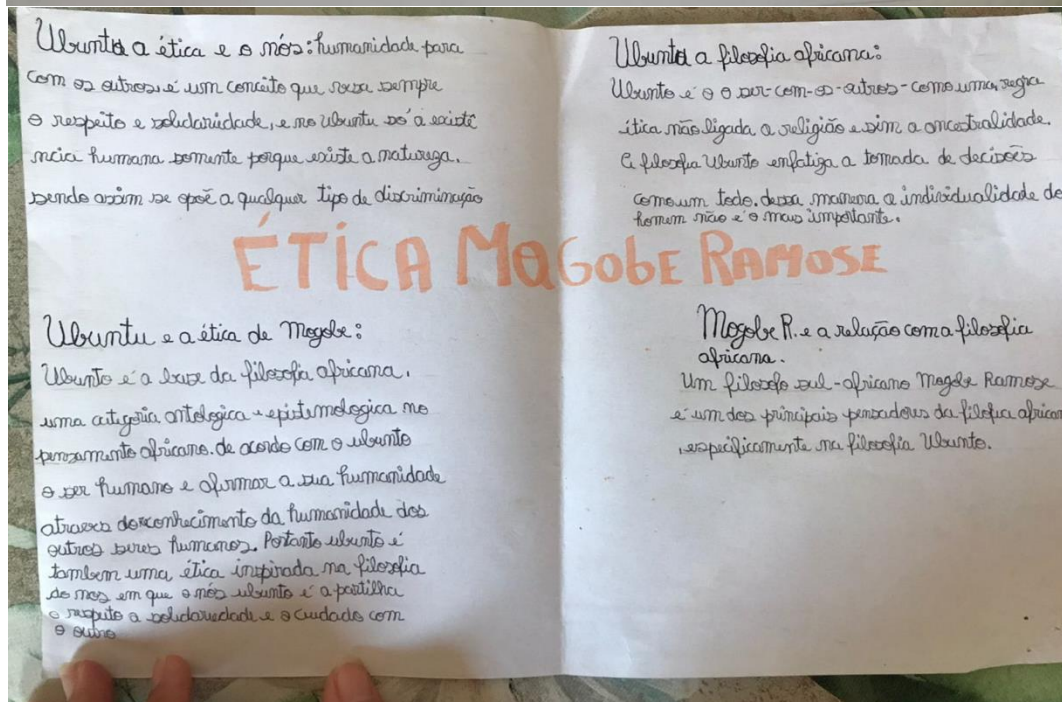 Ubunto a ética e o nós: humanidade para
com os outros é um conceito que visa sempre
o respeito e solidariedade, e no Ubuntu só a existê
ncia humana somente porque existe a natureza.
sendo assim se opoê a qualquer tipo de discriminação
Ubunto a filosofia africana:
Ubunto é o o ser-com-os-outros-como uma regra
ética não ligada a religião e sim a ancestralidade.
A filosofia Ubunto enfatiza a tomada de decisões
como um todo. dessa maneira a individualidade do
homem não é o mais importante.
ÉTICA MOGOBE RAMOSE
Ubuntu e a ética de Mogobe:
Ubunto é a base da filosofia africana.
uma categoria ontologica e epistemologica no
pensamento africano. de acordo com o ubunto
o ser humano e afirmar a sua humanidade
atraves do reconhecimento da humanidade dos
outros seres humanos. Portanto ubunto é
tambem uma ética inspirada na filosofia
do nos em que o nós ubunto é a partilha
o respeito a solidariedade e o cuidado com
o outro
Mogobe R. e a relação com a filosofia
africana.
Um filosofo sul-africano Mogobe Ramose
é um dos principais pensadores da filofia african
, especificamente na filosofia Ubunto.